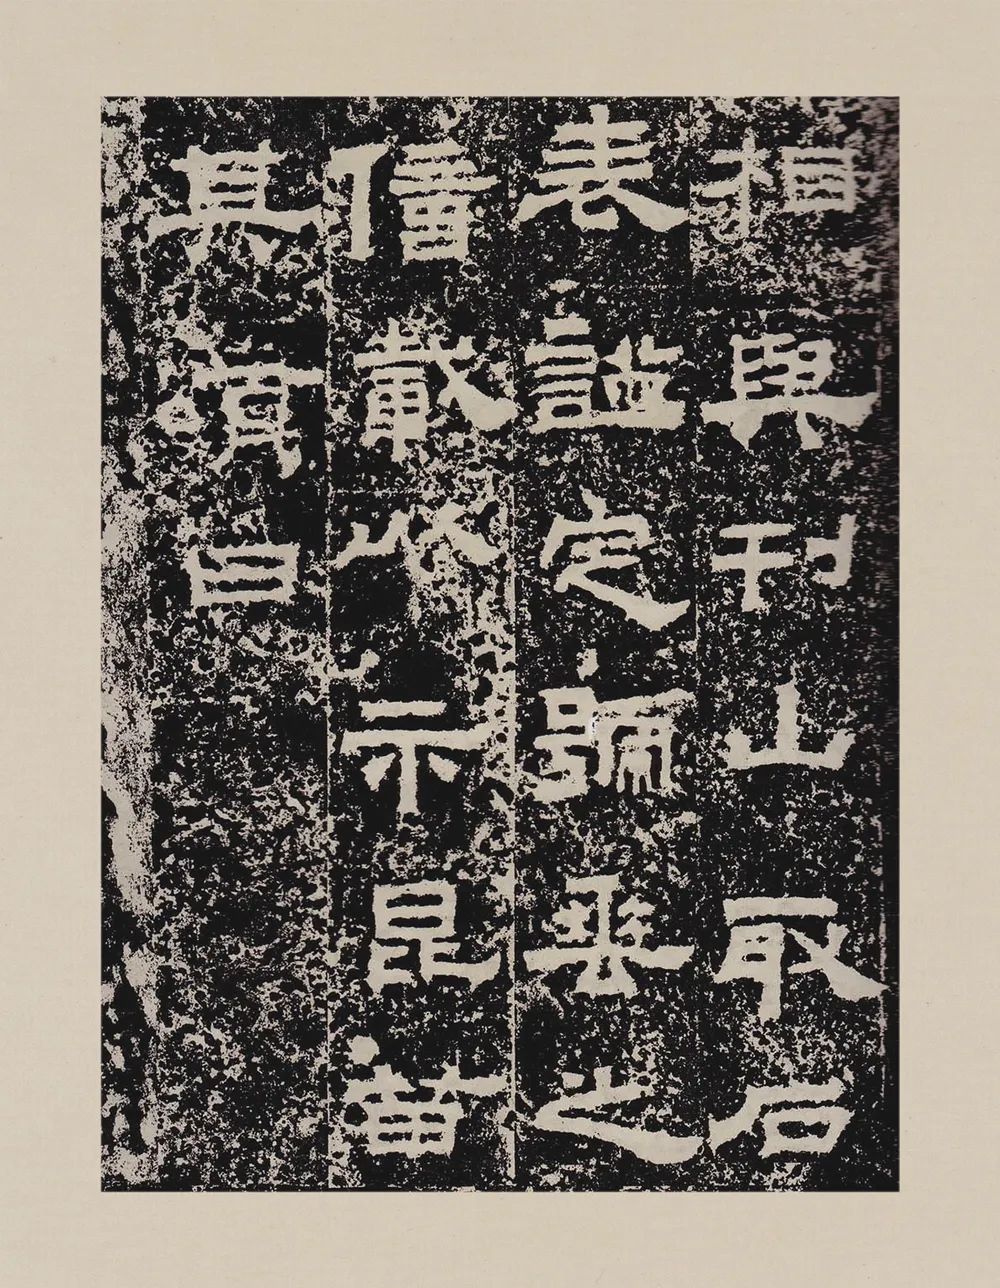 相與刊山取石
表謚定號垂之
億載以示昆苗
其頌曰